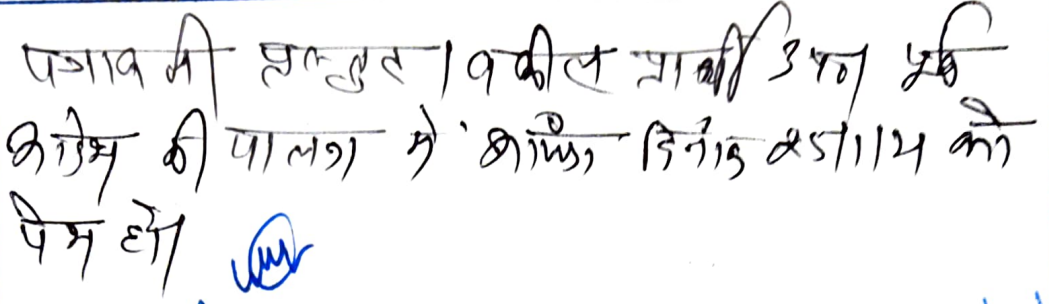 पत्रावली प्रस्तुत। वकील प्रार्थी उप0 पूर्व
आदेश की पालना में वास्ते दिनांक 25/1/14 को
पेश हो।